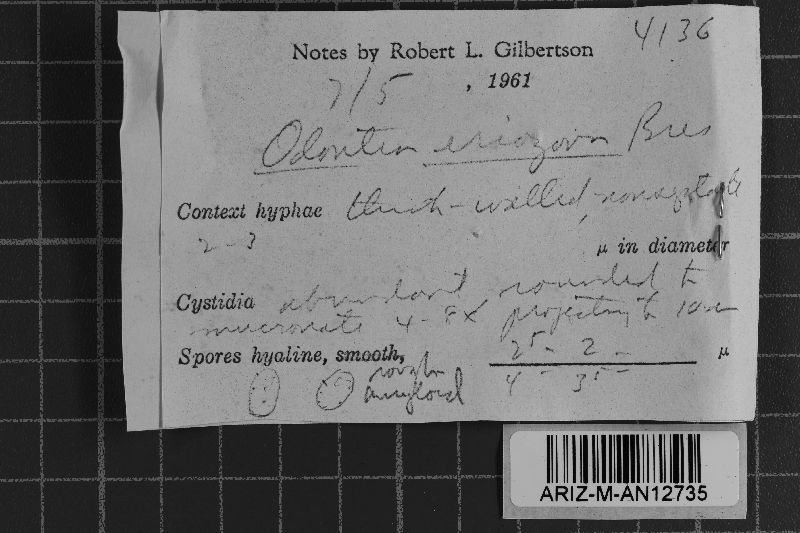 4136
Notes by Robert L. Gilbertson
7/5 , 1961
Odontia eriozona Bres
Context hyphae thick-walled, nonseptate
2-3 μ in diameter
Cystidia abundant rounded to
mucronate 4-8 x projecting to 10
Spores hyaline, smooth, 25- 2 - μ
rough 4 - 35 -
amyloid
ARIZ-M-AN12735